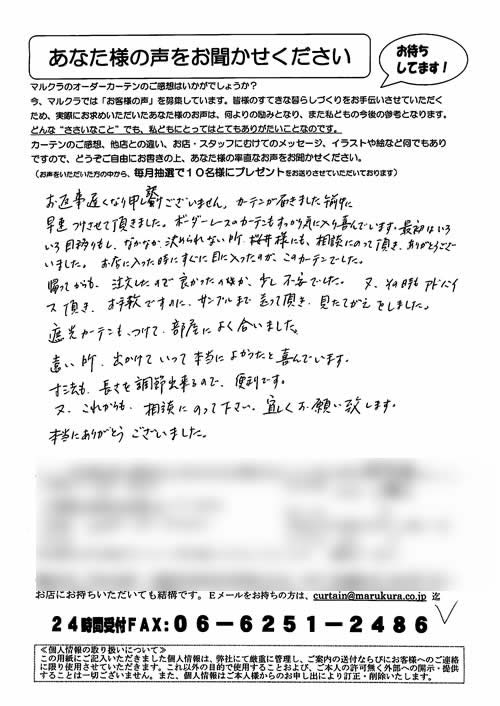 あなた様の声をお聞かせください
お待ち
してます！
マルクラのオーダーカーテンのご感想はいかがでしょうか？
今、マルクラでは「お客様の声」を募集しています。皆様のすてきな暮らしづくりをお手伝いさせていただく
ため、実際にお求めいただいたあなた様のお声は、何よりの励みとなり、また私どもの今後の参考となります。
どんな“ささいなこと”でも、私どもにとってはとてもありがたいことなのです。
カーテンのご感想、他店との違い、お店・スタッフにむけてのメッセージ、イラストや絵など何でもあり
ですので、どうぞご自由にお書きの上、あなた様の率直なお声をお聞かせください。
（お声をいただいた方の中から、毎月抽選で１０名様にプレゼントをお送りさせていただいております）
お返事遅くなり申し訳ございません、カーテンが届きました
早速つけさせて頂きました。ボーダーレースのカーテンもすっかり気に入り喜んでいます。最初はいろ
いろ目移りもし、なかなか決められない所、桜井様にも、相談にのって頂き、ありがとうござ
いました。お店に入った時にすぐに目に入ったのが、このカーテンでした。
帰ってからも、注文したので良かったのか、少し不安でした。又、その時も アドバイ
ス頂き、お手数ですのに、サンプルまで送って頂き、見たてがえをしました。
遮光カーテンも、つけて、部屋によく合いました。
遠い所、出かけていって本当によかったと喜んでいます。
寸法も、長さを調節出来るので、便利です。
又、これからも、相談にのって下さい。宜しくお願い致します。
本当にありがとうございました。
お店にお持ちいただいても結構です。Ｅメールをお持ちの方は、curtain@marukura.co.jp 迄
２４時間受付ＦＡＸ：０６－６２５１－２４８６
≪個人情報の取り扱いについて≫
この用紙にご記入いただきました個人情報は、弊社にて厳重に管理し、ご案内の送付ならびにお客様へのご連絡
に限り使用させていただきます。これ以外の目的で使用することおよび、ご本人の許可無く外部への開示・提供
することは一切ございません。また、個人情報はご本人様からのお申し出により訂正・削除いたします。